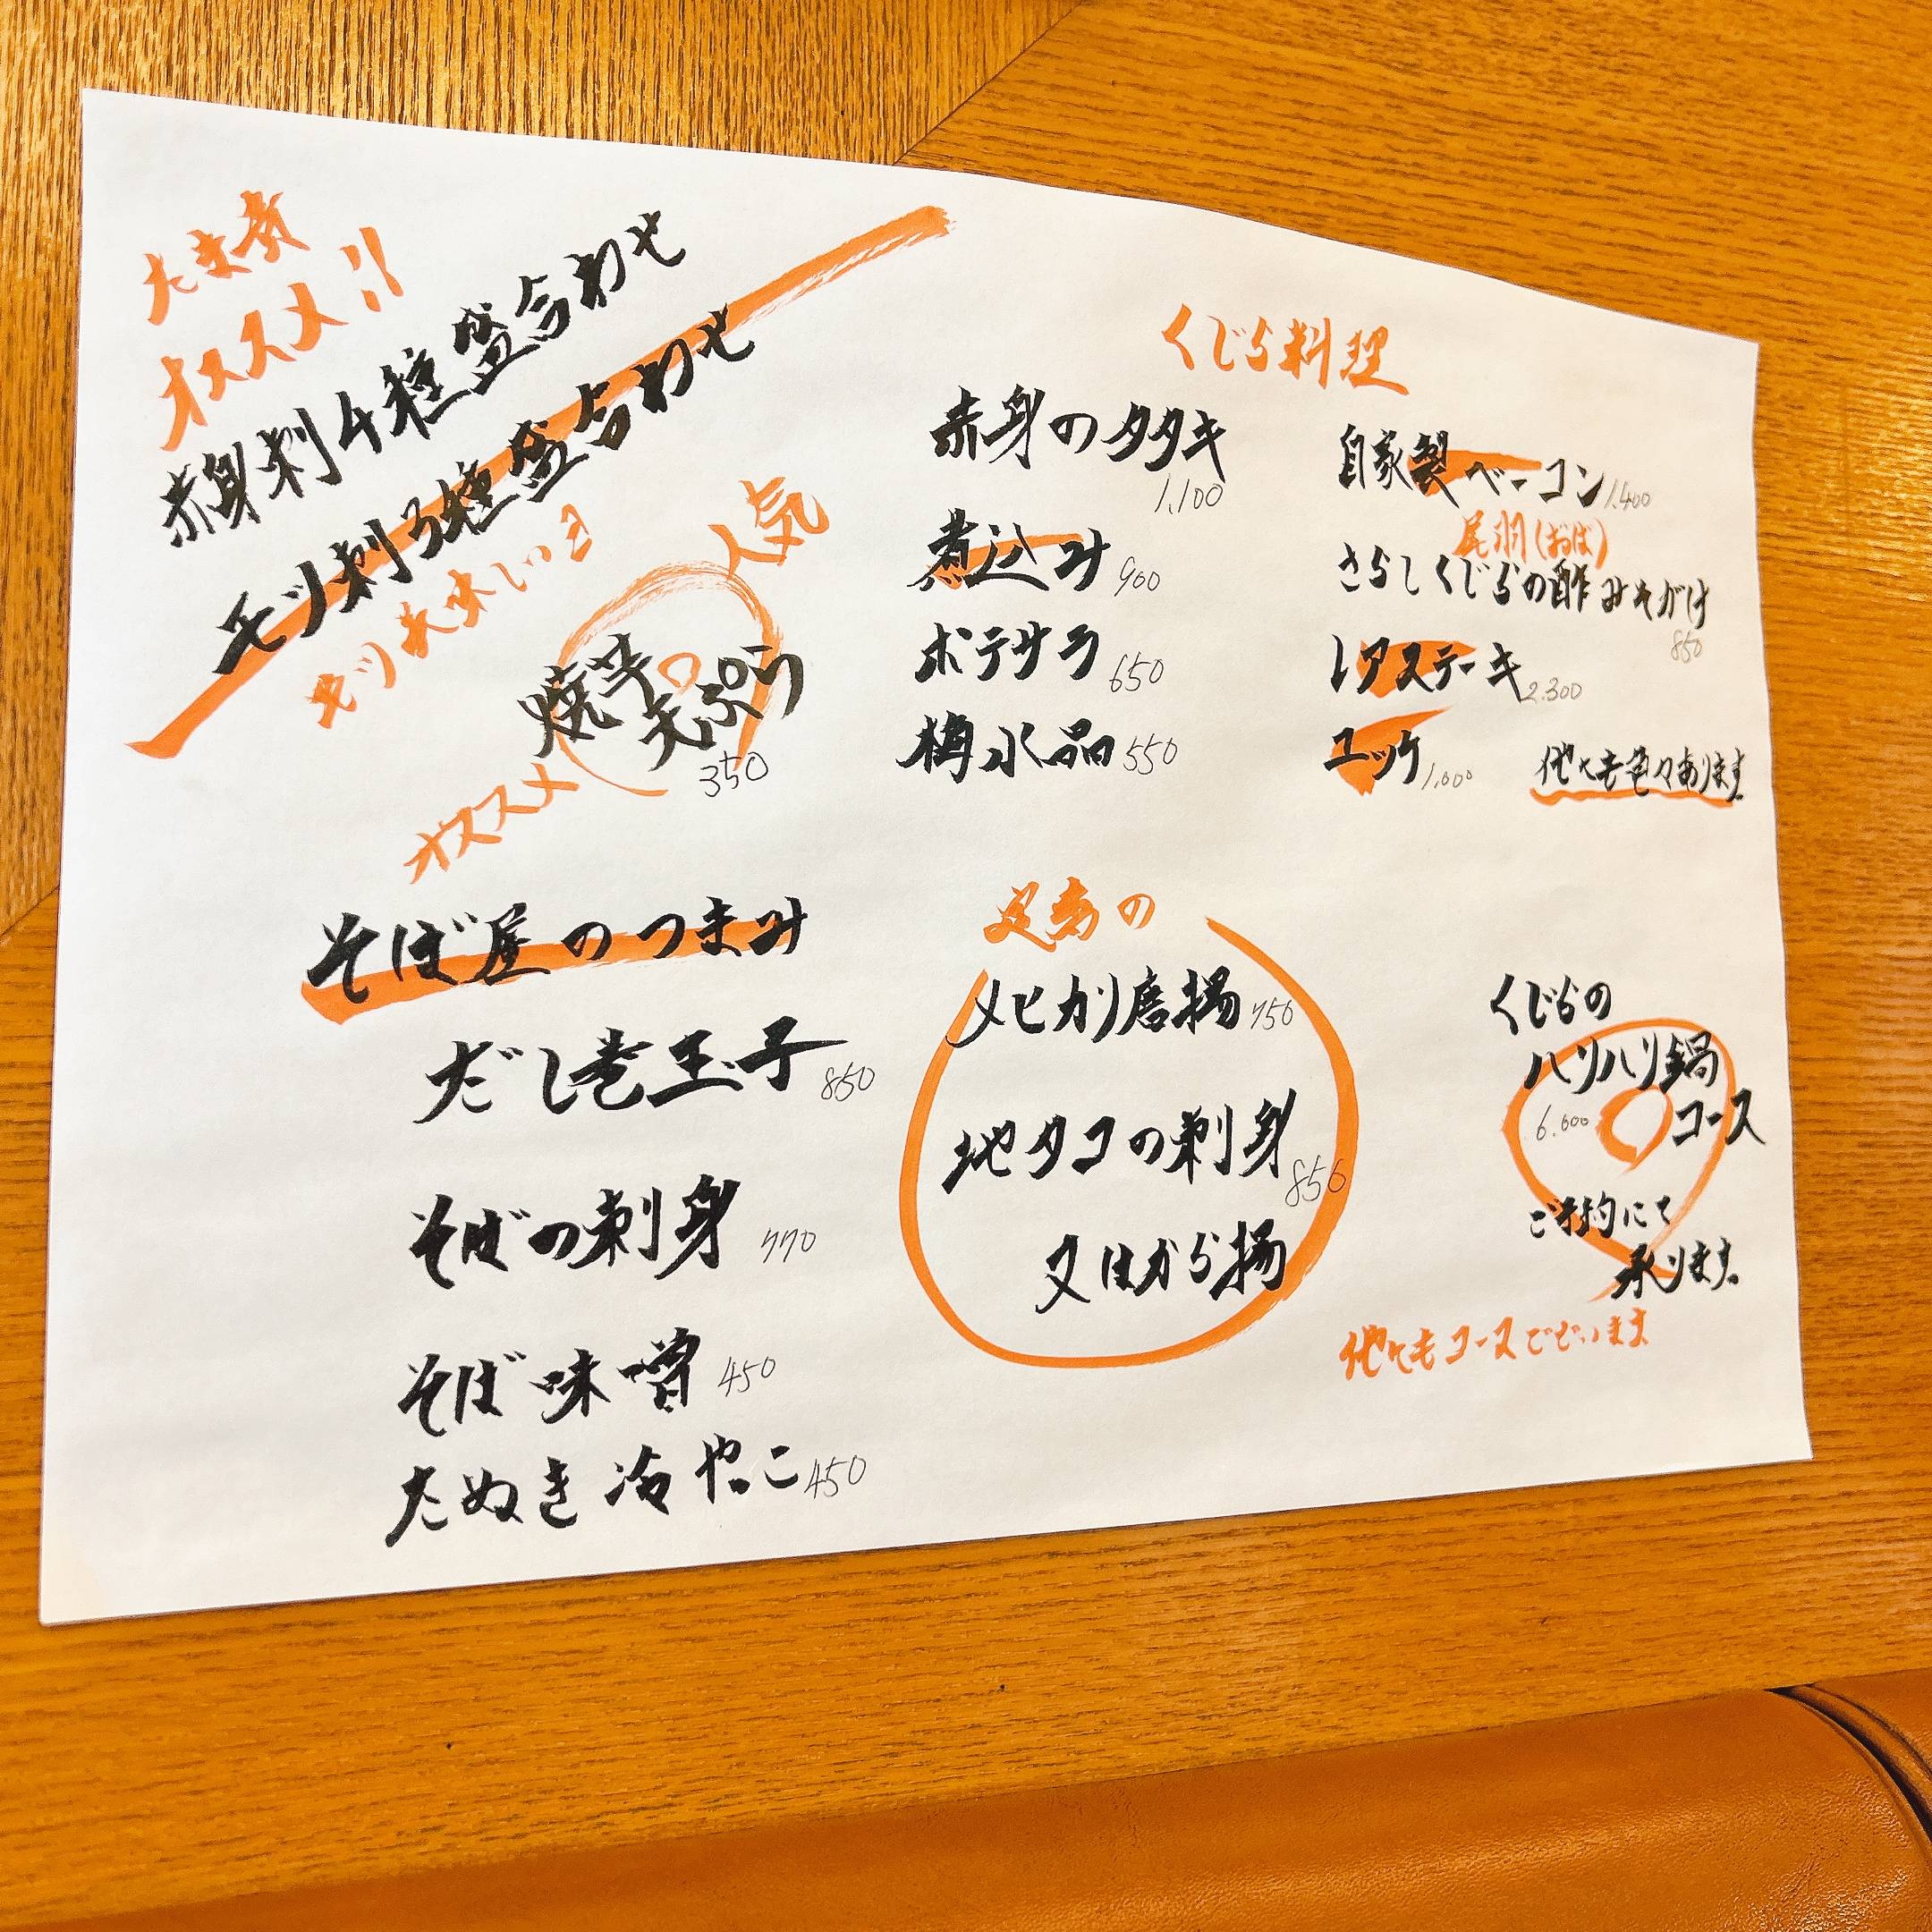 オススメ!!
赤身刺4種盛合わせ
モツ刺3種盛合わせ
人気
焼芋の
天ぷら
350
オススメ
そば屋のつまみ
だし巻玉子 850
そばの刺身 770
そば味噌 450
たぬき冷やっこ 450
くじら料理
赤身のタタキ
1.100
煮込み 900
ポテサラ 650
梅水晶 550
自家製ベーコン 1.400
尾羽(おば)
さらしくじらの酢みそがけ
850
レアステーキ 2.300
ユッケ 1.000
他にも色々あります
メヒカリ唐揚 750
地タコの刺身
850
又はから揚
くじらの
ハリハリ鍋
6.600 コース
ご予約にて
承ります。
他にもコースございます